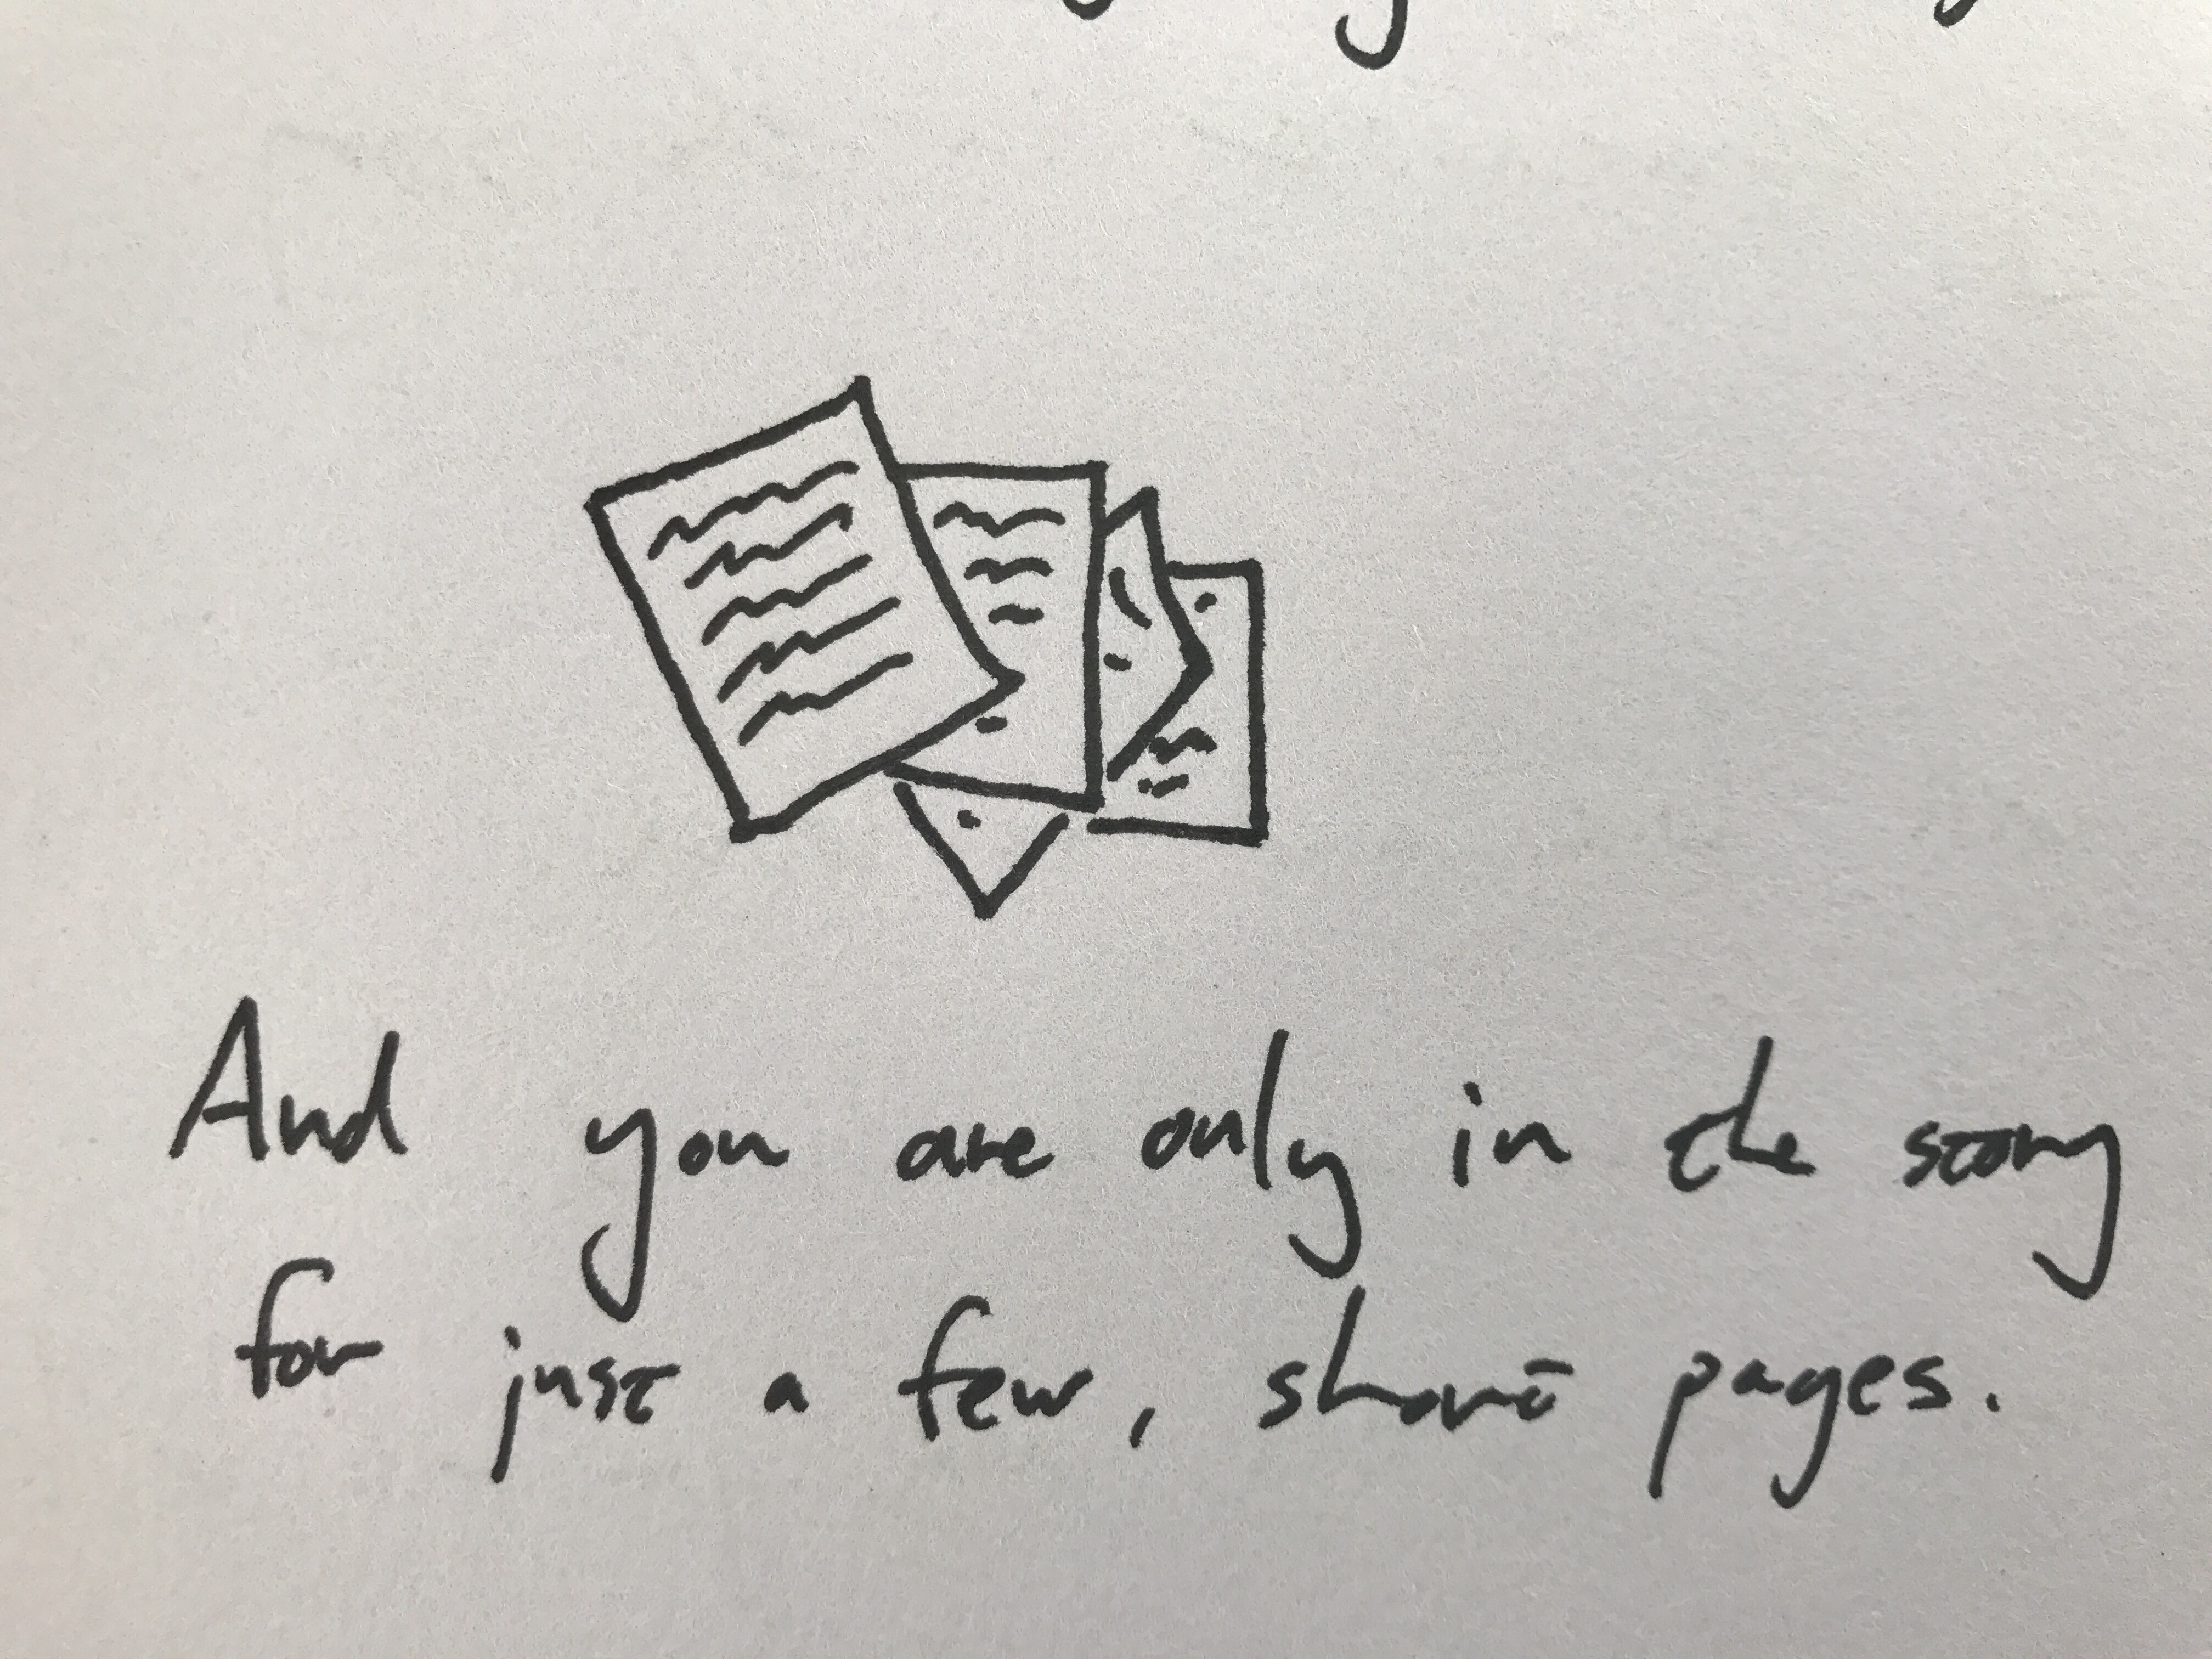 And you are only in the story
for just a few, short pages.